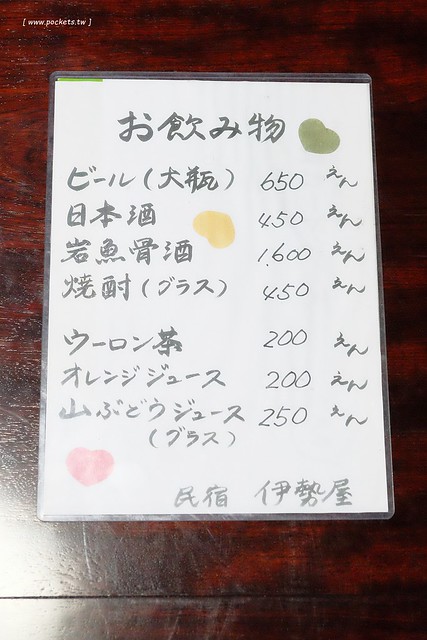 [ www.pockets.tw ]
お飲み物
ビール(大瓶) 650 えん
日本酒 450 えん
岩魚骨酒 1,600 えん
焼酎(グラス) 450 えん
ウーロン茶 200 えん
オレンジジュース 200 えん
山ぶどうジュース 250 えん
(グラス)
民宿 伊勢屋